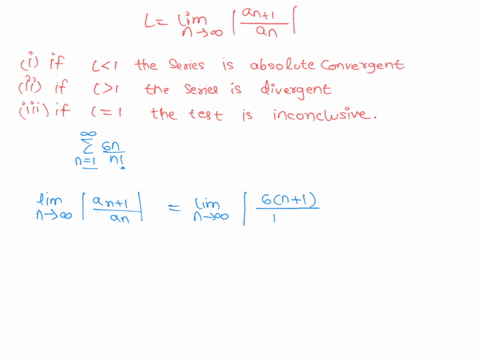 L = lim n→∞ | an+1 / an |
(i) if L<1 the series is absolute convergent
(ii) if L>1 the series is divergent
(iii) if L=1 the test is inconclusive.
∞ Σ n=1 6n / n!
lim n→∞ | an+1 / an | = lim n→∞ | 6(n+1) / (